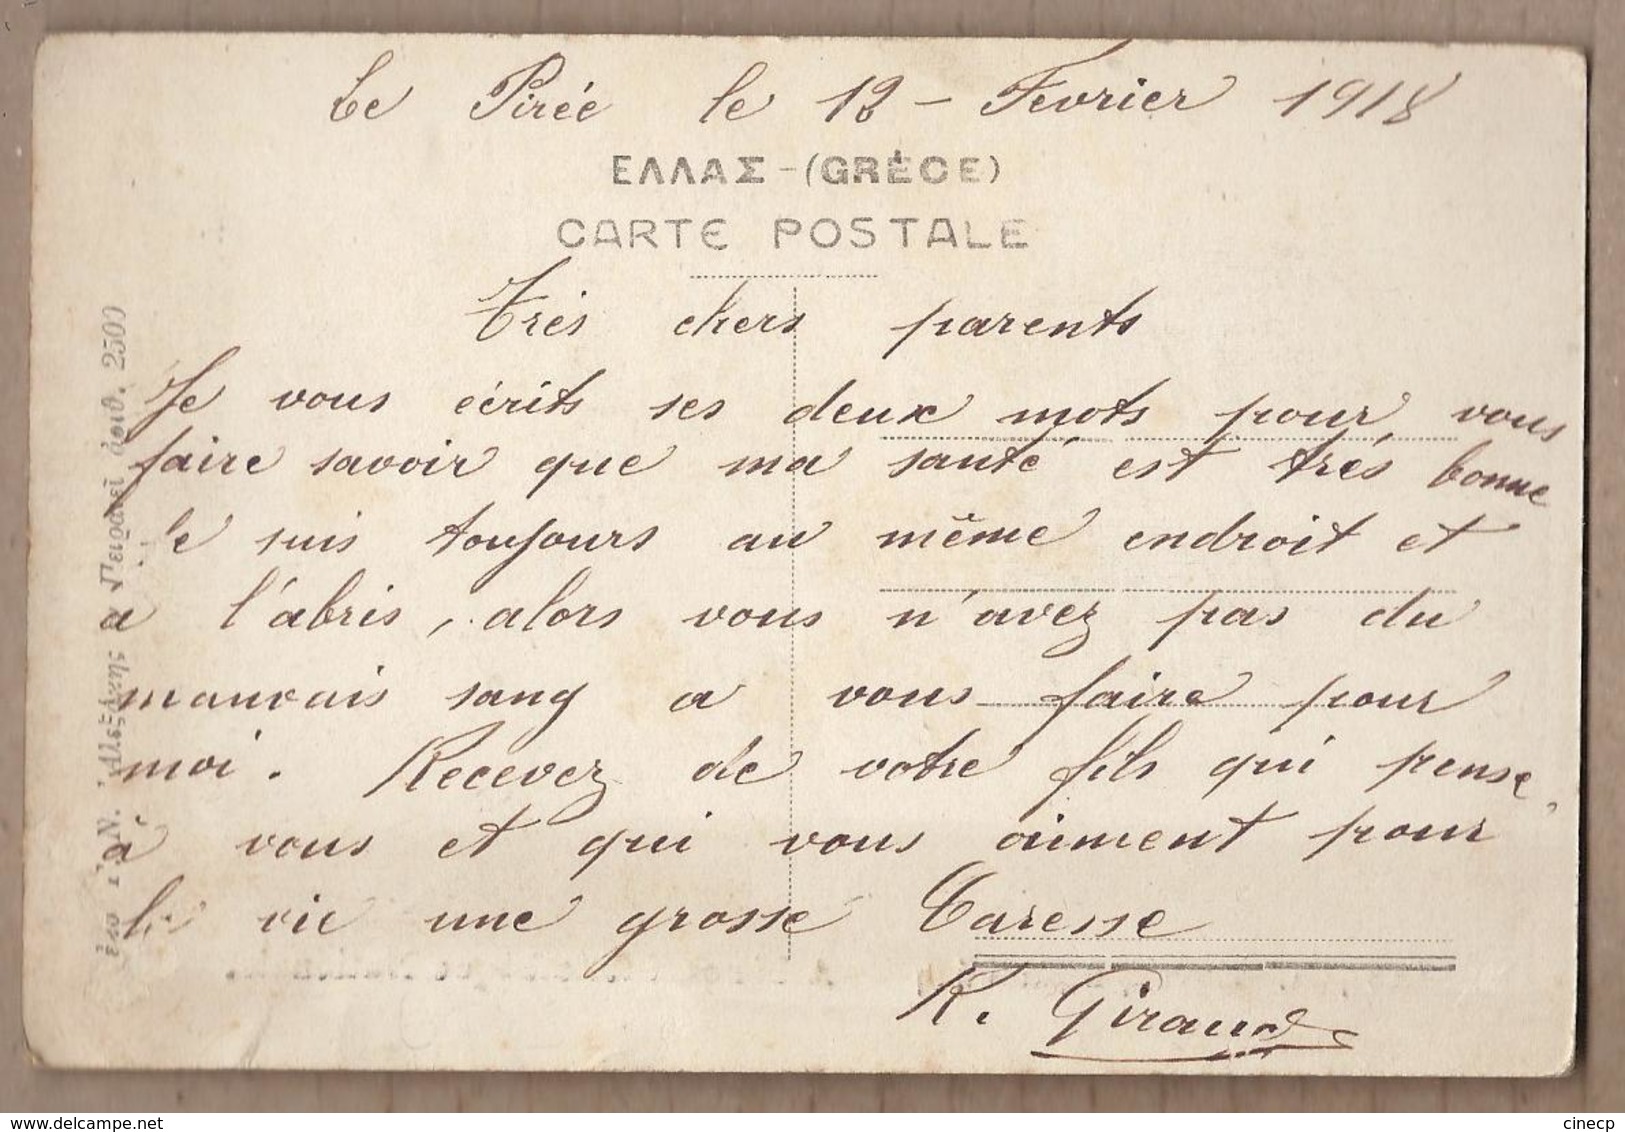 Le Pirée le 12 - Fevrier 1918
ΕΛΛΑΣ - (GRÈCE)
CARTE POSTALE
Trés chers parents
Je vous écrits ses deux mots pour vous
faire savoir que ma santé est trés bonne
Je suis toujours au même endroit et
a l'abris, alors vous n'avez pas du
mauvais sang a vous faire pour
moi. Recevez de votre fils qui pense
á vous et qui vous aiment pour
la vie une grosse Caresse
R. Giraud
Πειραιεῖ ἀριθ. 2500
www.delcampe.net
cinecp